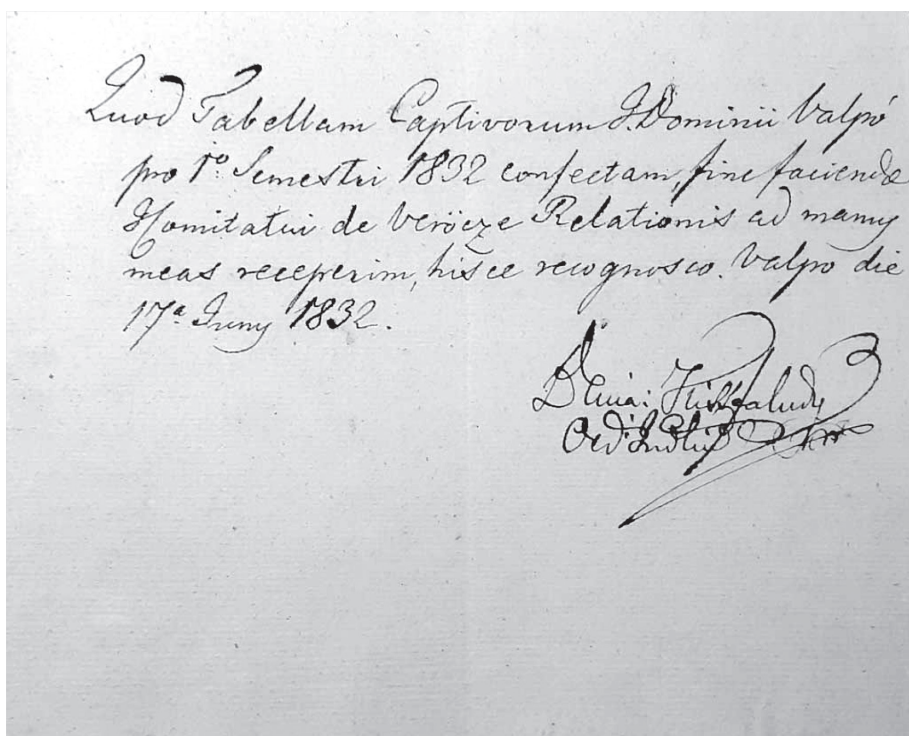 Quod Tabellam Captivorum I. Dominii Valpó
pro 1º Semestri 1832 confectam, fine faciendæ
I. Comitatui de Verőcze Relationis ad manus
meas receperim, hisce recognosco. Valpo die
17ª Juny 1832.
Kisfaludy
Ord. Judlium